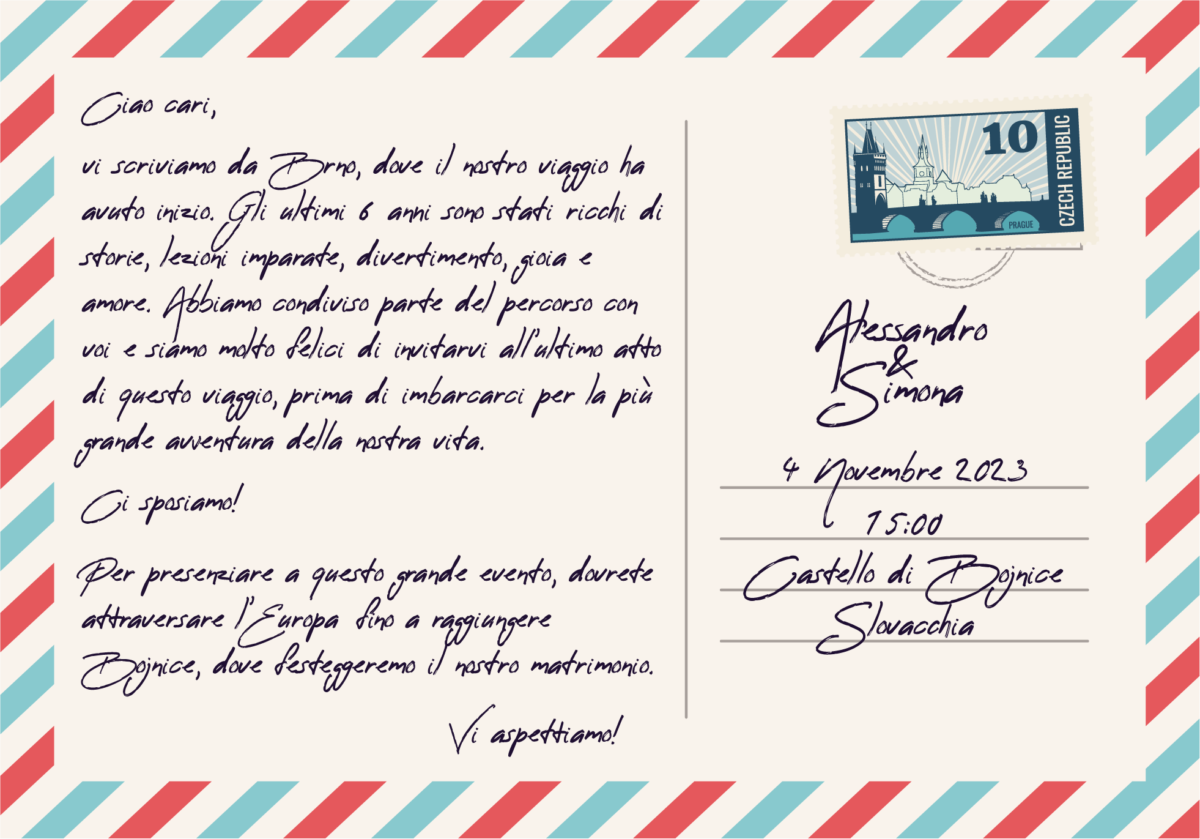 Ciao cari,
vi scriviamo da Brno, dove il nostro viaggio ha
avuto inizio. Gli ultimi 6 anni sono stati ricchi di
storie, lezioni imparate, divertimento, gioia e
amore. Abbiamo condiviso parte del percorso con
voi e siamo molto felici di invitarvi all'ultimo atto
di questo viaggio, prima di imbarcarci per la più
grande avventura della nostra vita.
Ci sposiamo!
Per presenziare a questo grande evento, dovrete
attraversare l'Europa fino a raggiungere
Bojnice, dove festeggeremo il nostro matrimonio.
Vi aspettiamo!
10
CZECH REPUBLIC
PRAGUE
Alessandro
&
Simona
4 Novembre 2023
15:00
Castello di Bojnice
Slovacchia